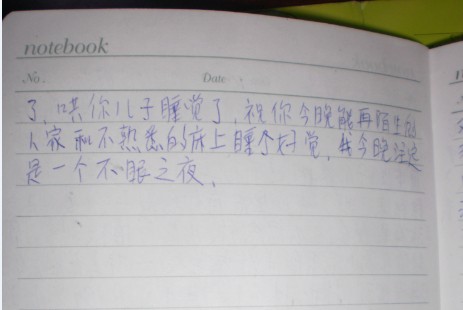 notebook
No.
Date
了，哄你儿子睡觉了，祝你今晚能再陌生的
人家和不熟悉的床上睡个好觉，我今晚注定
是一个不眠之夜，